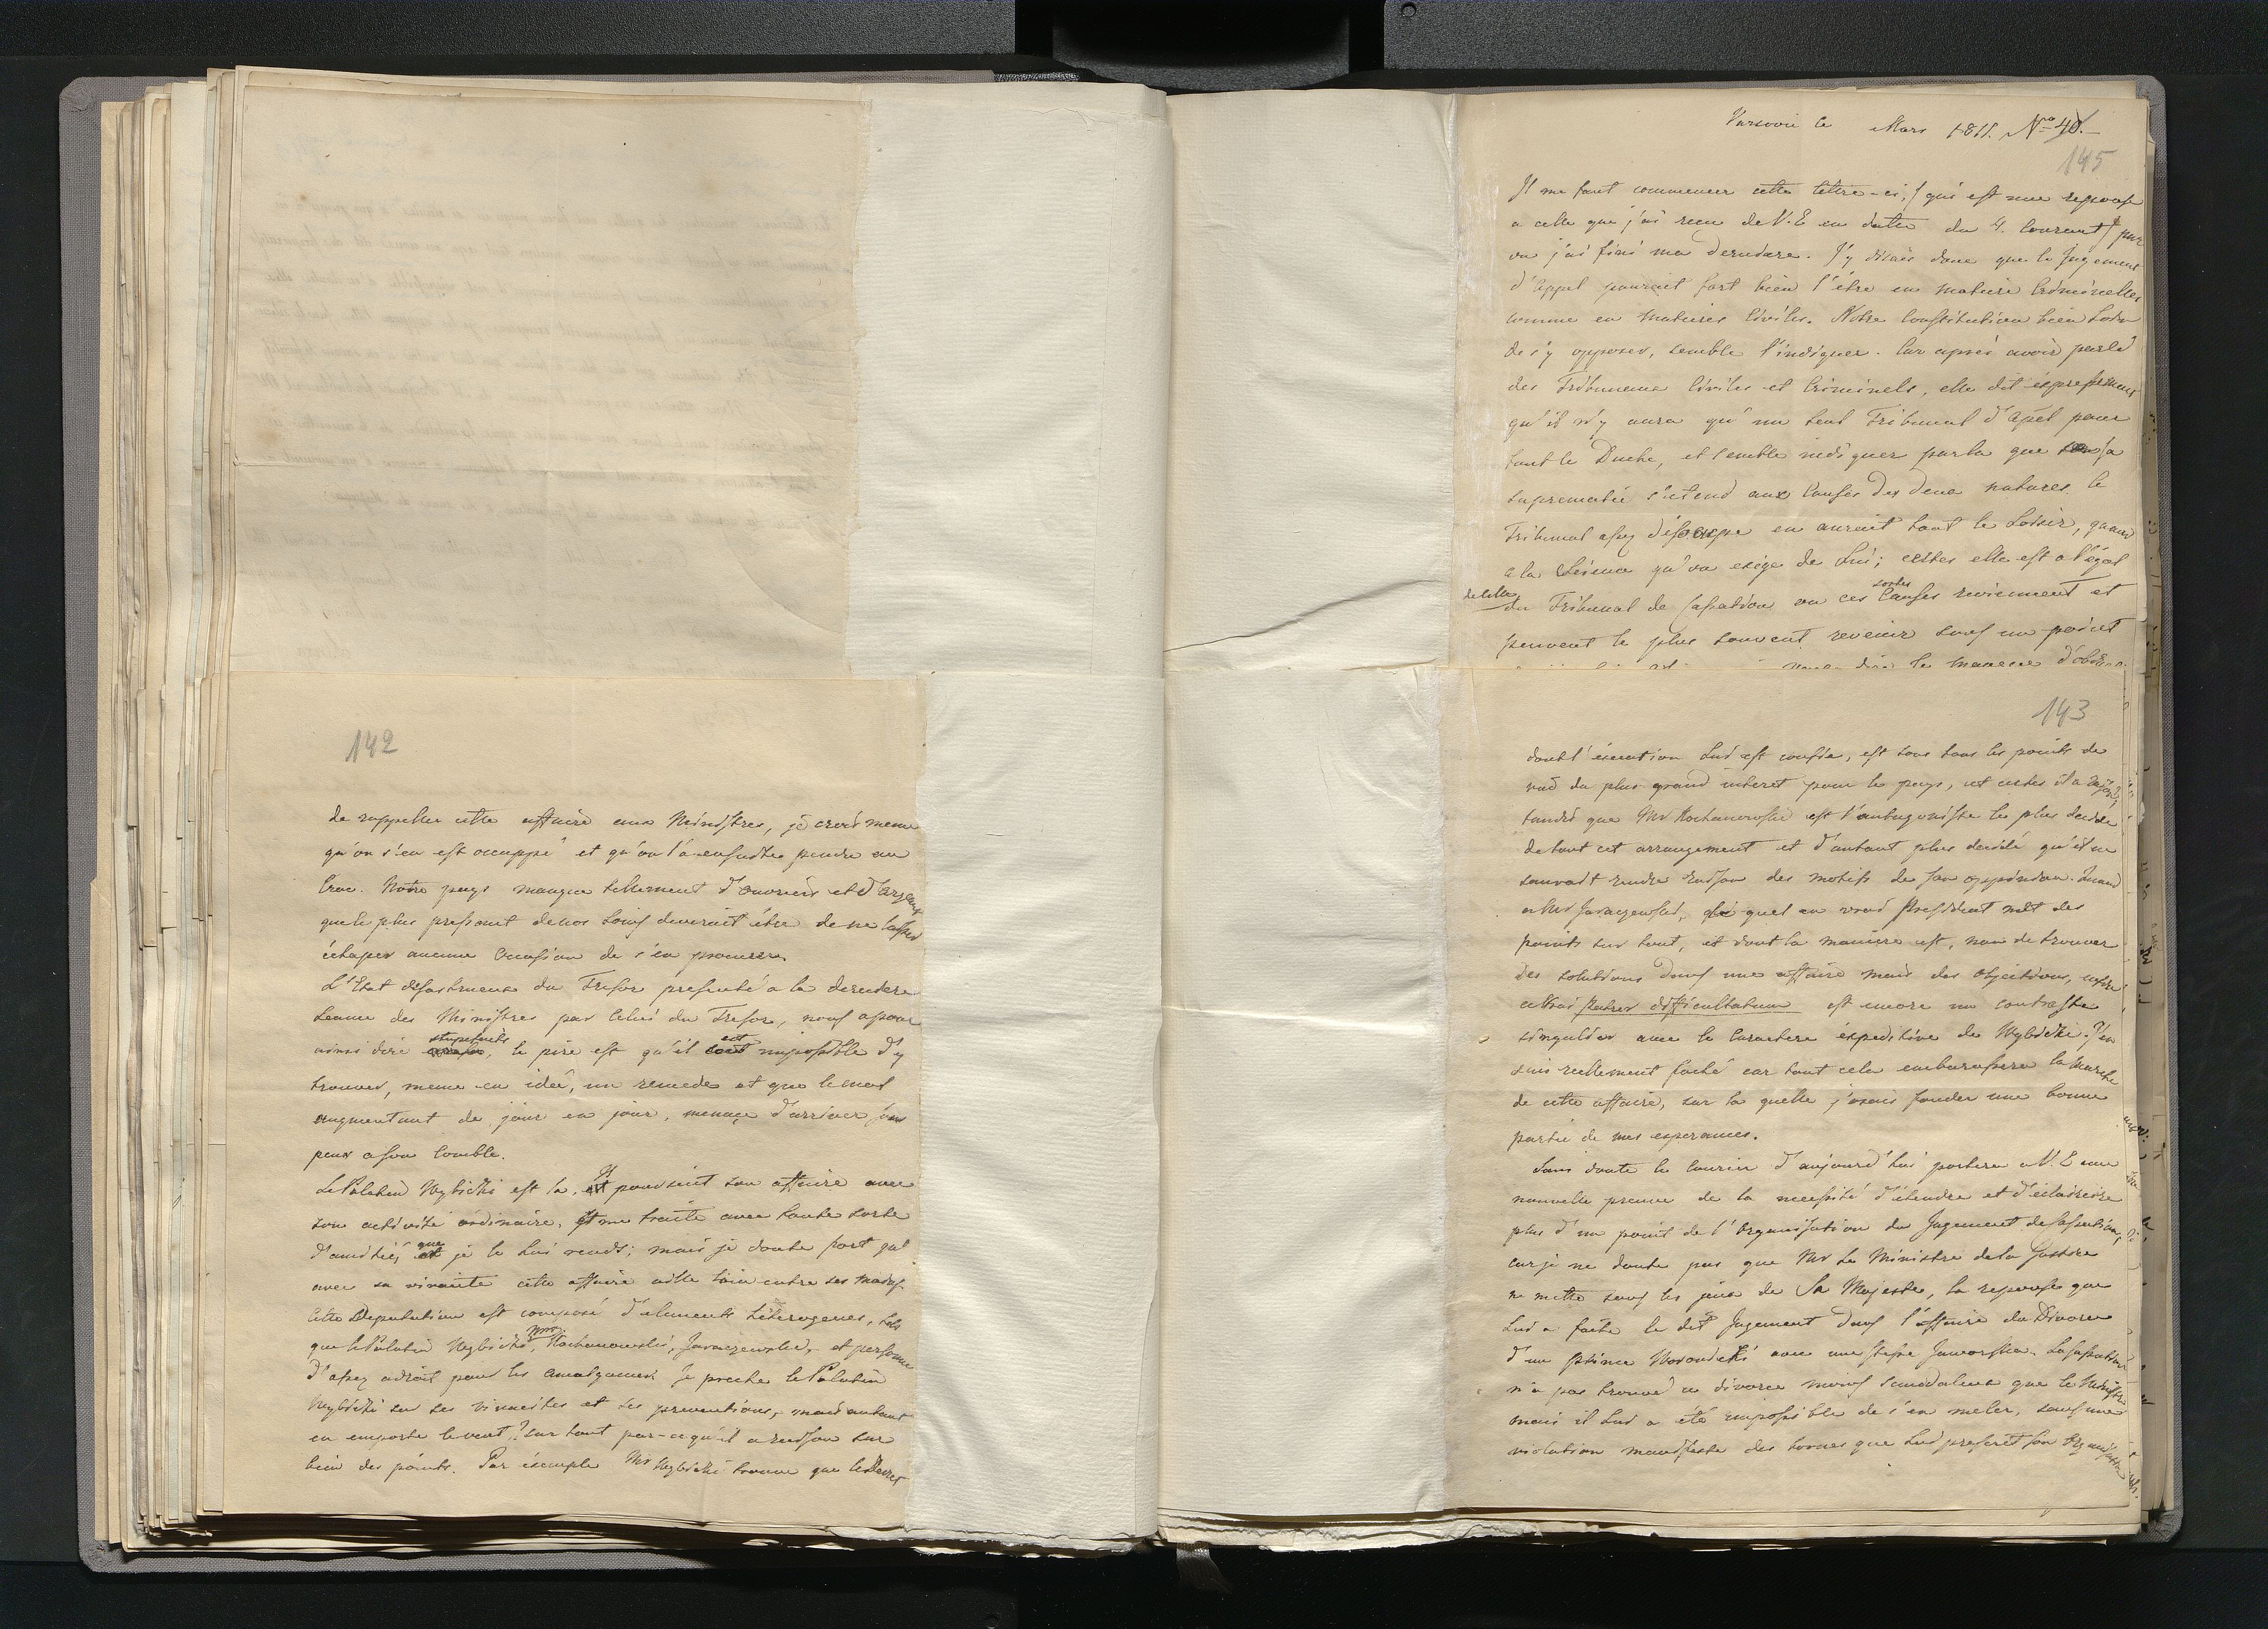 142
de rappeller cette affaire aux Ministres, je crois meme
qu'on s'en est occuppé et qu'on l'a ensuite pendue au
Croc. Notre pays manque tellement d'ouvriers et d'argent
que le plus pressant de nos soins devrait être de ne laisser
échaper aucune occasion de s'en procurer.
L'Etat desastrueux du Tresor presenté a la derniere
Seance des Ministres par Celui du Tresor, nous a pour
ainsi dire stupefaits, le pire est qu'il est impossible d'y
trouver, meme en idée, un remede et que le mal
augmentant de jour en jour, menace d'arriver sous
peu a son comble.
Le Palatin Wybicki est la. Il poursuit son affaire avec
son activité ordinaire, et me traite avec toute sorte
d'amitié, que je le lui rends; mais je doute fort qu'
avec sa vivacité cette affaire aille loin entre ses mains.
Cette Deputation est composé d'elements heterogenes, tels
que le Palatin Wybicki, Mrs Kochanowski, Jaraczewski, et personne
d'assez adroit pour les amalgamer. Je preche le Palatin
Wybicki sur ses vivacites et ses preventions, mais autant
en emporte le vent! sur tout par-ce qu'il a raison sur
bien des points. Par éxemple Mr Wybicki trouve que le Decret
Varsovie le Mars 1811. Nro 40.
145
Il me faut commencer cette lettre-ci, (qui est une reponse
a celle que j'ai recu de V. E en datte du 4. Courant) par
ou j'ai fini ma derniere. J'y disais donc que le Jugement
d'Appel pourait fort bien l'être en matiere Criminelles
comme en matieres Civiles. Notre Constitution bien loin
de s'y opposer, semble l'indiquer. Car après avoir parlé
des Tribuneaux Civiles et Criminels, elle dit expressement
qu'il n'y aura qu'un seul Tribunal d'Apel pour
tout le Duché, et semble indiquer par la que sa
suprematie s'etend aux Causes des deux natures. le
Tribunal assez désocupe en aurait tout le loisir, quand
a la Science qu'on exige de Lui; certes elle est a l'égal
de celle du Tribunal de Cassation ou ces sortes Causes reviennent et
peuvent le plus souvent revenir sous un point
143
dont l'éxecution lui est confiée, est sous tous les points de
vuë du plus grand interet pour le pays, et certes il a raison,
tandis que Mr Kochanowski est l'antagoniste le plus decidé
de tout cet arrangement et d'autant plus decidé qu'il ne
sauroit rendre raison des motifs de son oppinion. Quand
a Mr Jaraczewski, le quel en vrai President met des
points sur tout, et dont la maniere est, non de trouver
des solutions dans une affaire mais des objections,
Pater difficultatum est encore un contraste
singulier avec le Caractere éxpeditive de Wybicki. J'en
suis reellement faché car tout cela embarassera la marche
de cette affaire, sur la quelle j'osais fonder une bonne
partie de mes esperances.
Sans doute le Courier d'aujourd'hui portera a V. E une
nouvelle preuve de la necessité d'étendre et d'éclaircire
plus d'un point de l'Organisation du Jugement de Cassation,
car je ne doute pas que Mr Le Ministre de la Justice
ne mette sous les yeux de Sa Majesté, la reponse que
lui a faite le dit Jugement dans l'affaire du Divorce
d'un Prince Woroniecki avec une Jaworska. La Cassation
n'a pas trouvé ce divorce moins scandaleux que le Ministre
mais il lui a été impossible de s'en meler, sans une
violation manifeste des bornes que lui prescrit son Organisation